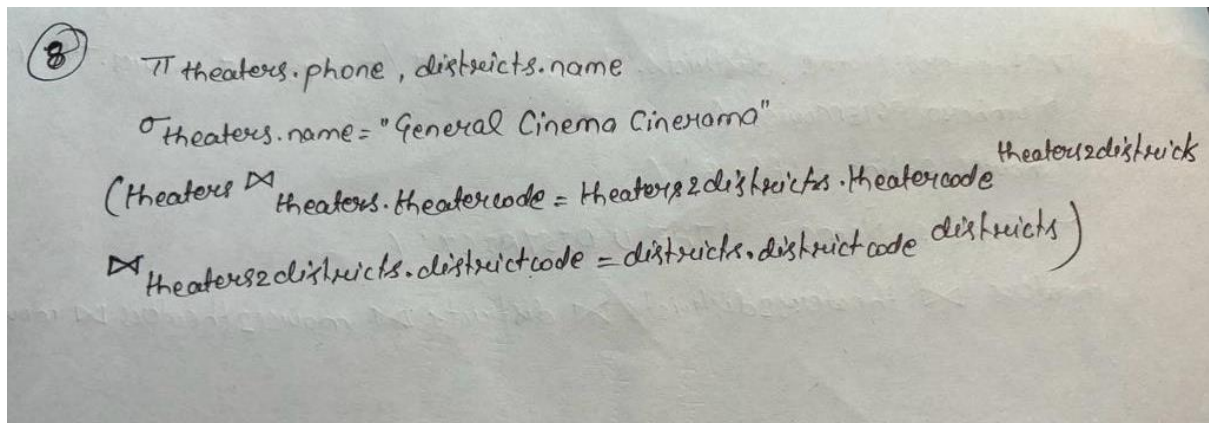 8
π theaters.phone, districts.name
σ theaters.name = "General Cinema Cinerama"
(theaters ⋈ theaters.theatercode = theaters2districts.theatercode theaters2districts
⋈ theaters2districts.districtcode = districts.districtcode districts)